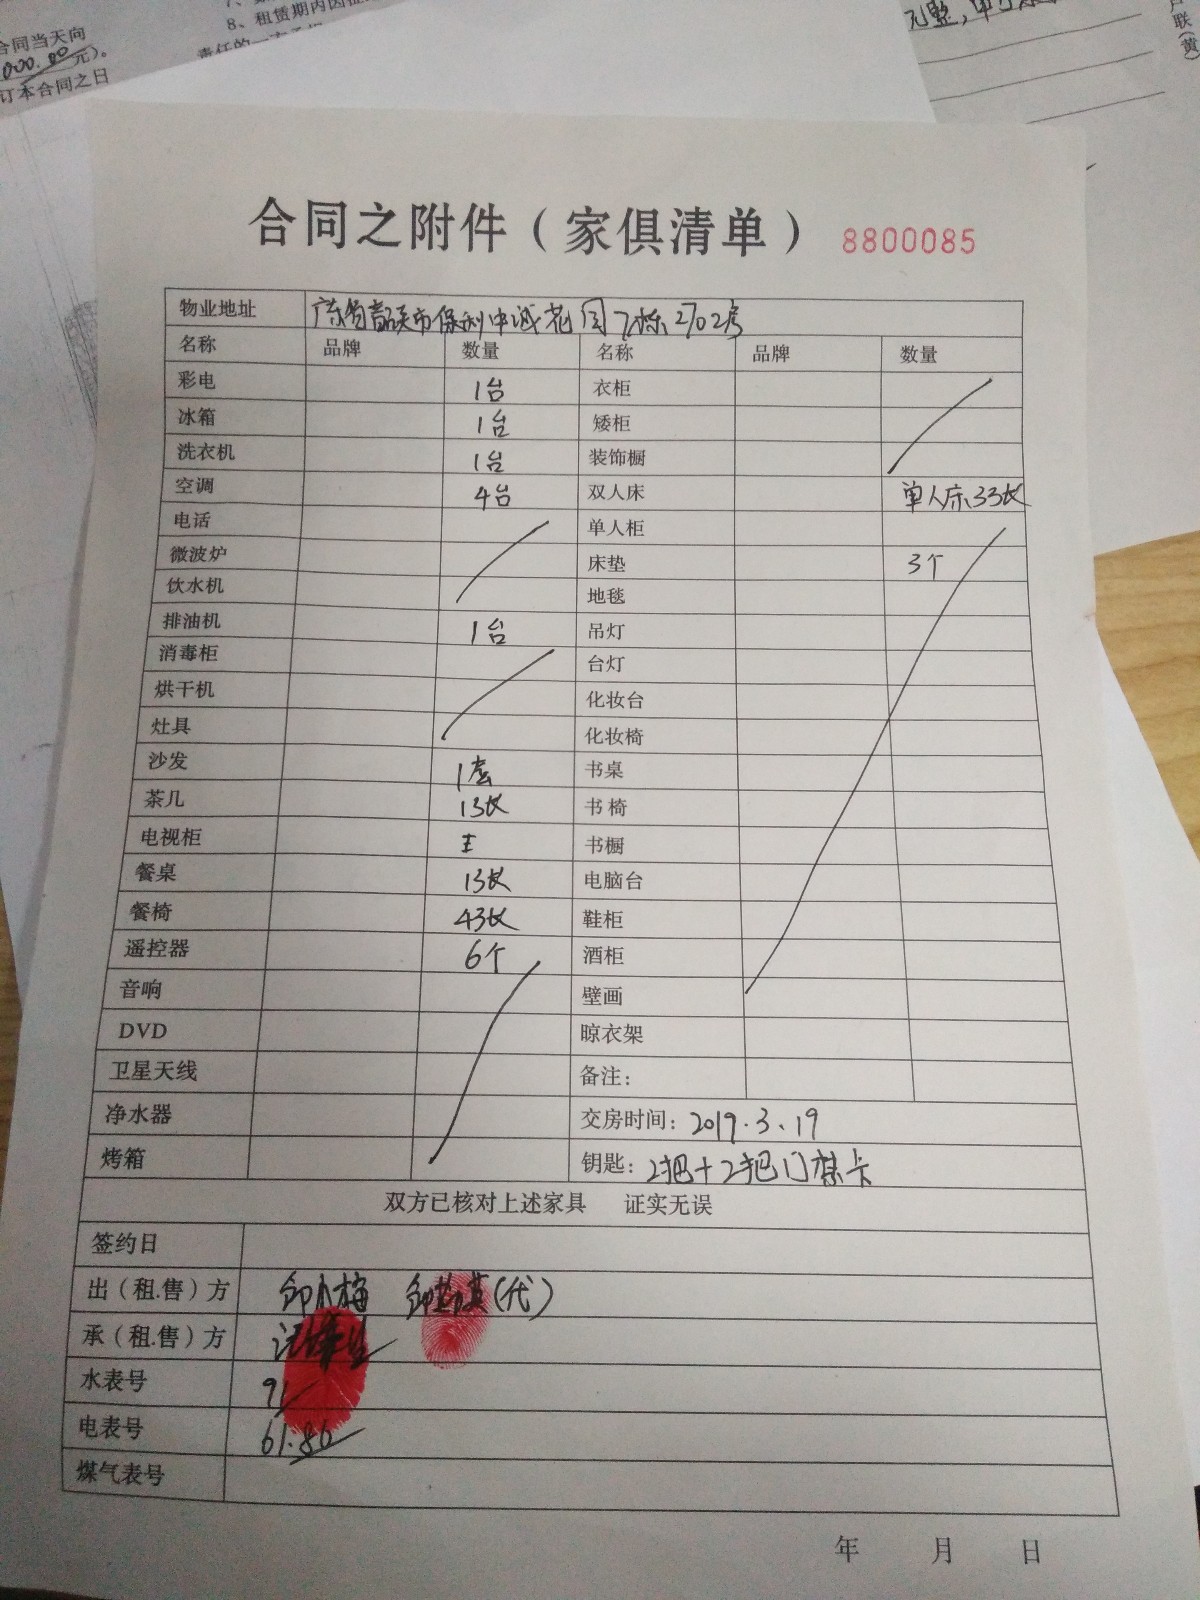 合同当天向
000.00元)。
订本合同之日
8、租赁期内因
责任的一方
元整,
联(黄)
合同之附件(家俱清单) 8800085
物业地址 广东省韶关市保利中诚花园7栋2702房
名称 品牌 数量 名称 品牌 数量
彩电 1台 衣柜
冰箱 1台 矮柜
洗衣机 1台 装饰橱
空调 4台 双人床 单人床3张
电话 单人柜
微波炉 床垫 3个
饮水机 地毯
排油机 1台 吊灯
消毒柜 台灯
烘干机 化妆台
灶具 化妆椅
沙发 1套 书桌
茶几 1张 书椅
电视柜 书橱
餐桌 1张 电脑台
餐椅 4张 鞋柜
遥控器 6个 酒柜
音响 壁画
DVD 晾衣架
卫星天线 备注:
净水器 交房时间: 2019.3.19
烤箱 钥匙: 2把+2把门禁卡
双方已核对上述家具 证实无误
签约日
出(租.售)方 (代)
承(租.售)方
水表号 91
电表号 61.86
煤气表号
年 月 日